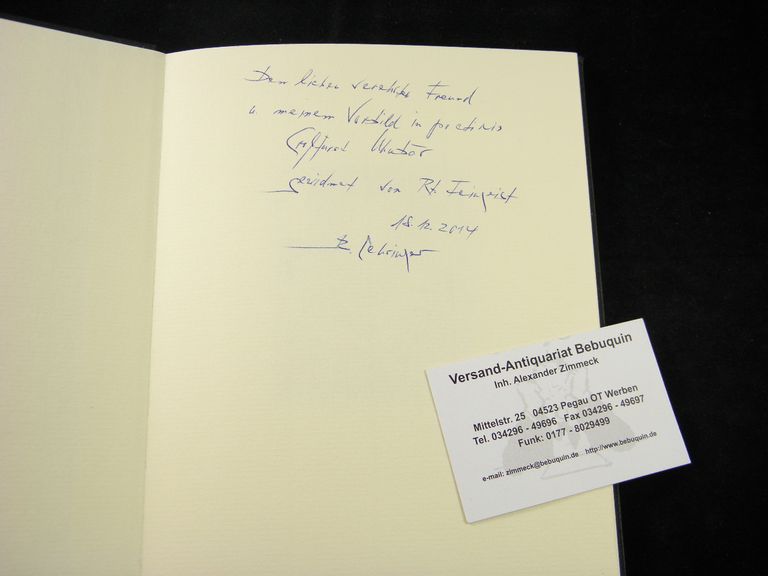 Dem lieben verehrten Freund
u. meinem Vorbild in
gewidmet von Rt.
18.12.2014
Versand-Antiquariat Bebuquin
Inh. Alexander Zimmeck
Mittelstr. 25 04523 Pegau OT Werben
Tel. 034296 - 49696 Fax 034296 - 49697
Funk: 0177 - 8029499
e-mail: zimmeck@bebuquin.de http://www.bebuquin.de